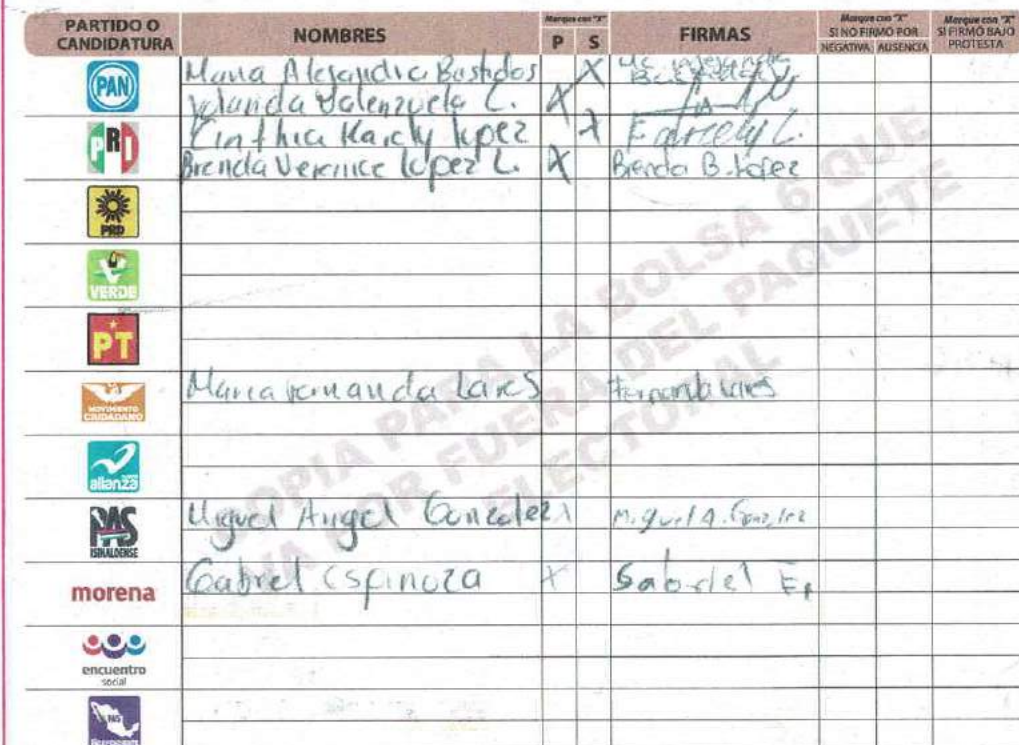 PARTIDO O CANDIDATURA NOMBRES Marque con "X" P S FIRMAS Marque con "X" SI NO FIRMÓ POR NEGATIVA AUSENCIA Marque con "X" SI FIRMÓ BAJO PROTESTA
PAN Maria Alejandra Bastidas X
Yolanda Valenzuela C. X
PRI Cinthia Karely lopez X Karely L.
Brenda Verenice lopez L. X Brenda B. Lopez
PRD
VERDE
PT
MOVIMIENTO CIUDADANO Maria fernanda Lares Fernanda Lares
alianza
PAS SINALOENSE Miguel Angel Gonzalez X Miguel A. Gonzalez
morena Gabriel Espinoza X Gabriel Es
encuentro social
PAIS
COPIA PARA LA BOLSA 6 QUE
VA POR FUERA DEL PAQUETE
ELECTORAL